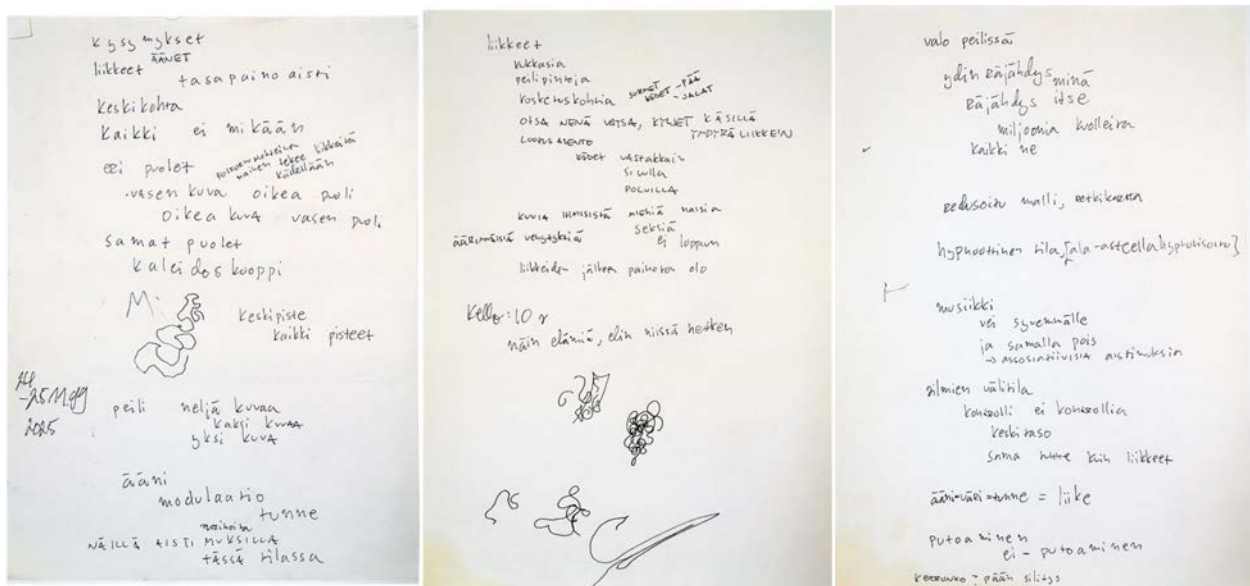 kysymykset
ÄÄNET
liikkeet tasapainoaisti
keskikohta
kaikki ei mikään
eri puolet
nainen tekee liikkeitä
kädellään
vasen kuva oikea puoli
oikea kuva vasen puoli
samat puolet
kaleidoskooppi
M:
keskipiste
kaikki pisteet
24
-25.11.99
2025
peili neljä kuvaa
kaksi kuvaa
yksi kuva
ääni
modulaatio
tunne
NÄILLÄ AISTIMUKSILLA
TÄSSÄ tilassa
liikkeet
peilipintoja
kosketuskohtia
SORMET - PÄÄ
KÄDET - JALAT
OTSA NENÄ VATSA, KYLJET KÄSILLÄ
YMPYRÄ LIIKKEIN
LOOTUS ASENTO
KÄDET VASTAKKAIN
SIVULLA
POLVILLA
KUVIA IHMISISTÄ miehiä naisia
seksiä
äärimmäisiä venytyksiä
ei loppun
liikkeiden jälkeen painoton olo
Kello: 10
näin elämiä, elin niissä hetken
valo peilissä
ydinräjähdys minä
räjähdys itse
miljoonia
kaikki ne
redusoitu malli,
hypnoottinen tila, [ala-asteella hypnotisoitu]
musiikki
vei syvemmälle
ja samalla pois
→ assosiatiivisia aistimuksia
silmien välitila
kontrolli ei kontrollia
keskitaso
sama tunne kuin liikkeet
ääni=väri=tunne = liike
putoaminen
ei - putoaminen
KERRUNKO? pään silitys